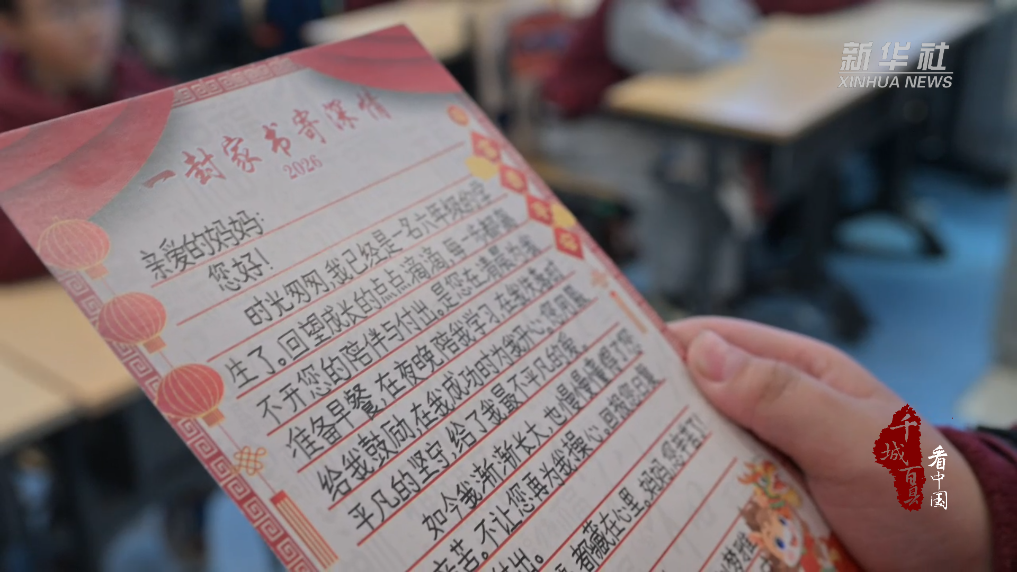 新华社
XINHUA NEWS
一封家书寄深情
2026
亲爱的妈妈:
您好!
时光匆匆,我已经是一名六年级的学
生了。回望成长的点点滴滴,每一步都离
不开您的陪伴与付出。是您在清晨给我
准备早餐,在夜晚陪我学习,在我失落时
给我鼓励,在我成功时为我开心,您用最
平凡的坚守,给了我最不平凡的爱。
如今我渐渐长大,也慢慢懂得了您
辛苦。不让您再为我操心,回报您日复
付出。
都藏在心里。妈妈,您辛苦了!
千城百县
看中国